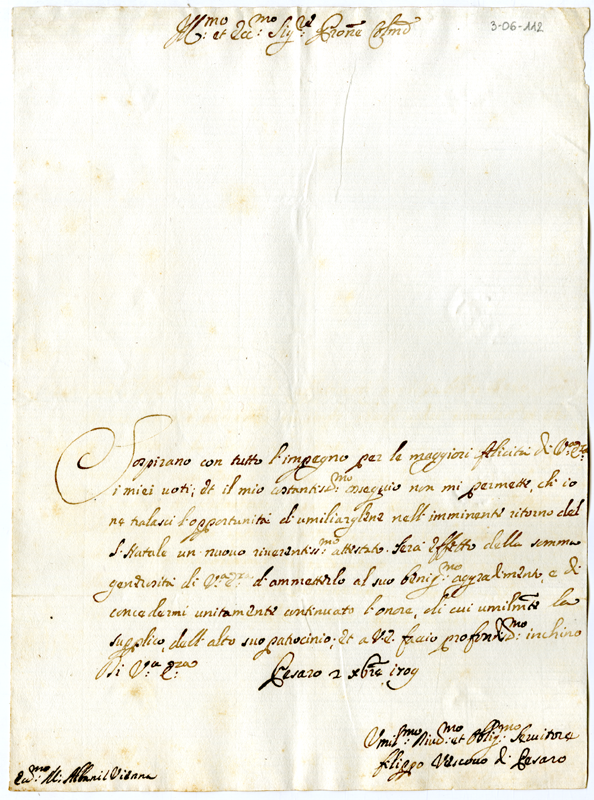 Ill:mo et Ecc:mo Sig:re Pron̄e Col̄mo
3-06-112
Sospirano con tutto l'impegno per le maggiori felicità di V:a E:za
i miei voti; et il mio costantiss:mo ossequio non mi permette, ch'io
ne tralasci l'opportunità di umiliargliene nell'imminente ritorno del
S. Natale un nuovo riverentiss:mo attestato. Sarà effetto della somma
generosità di V:a E:za d'ammetterlo al suo benig:mo aggradimento, e di
concedermi unitamente continuato l'onore, di cui umilm̄te la
supplico, dell'alto suo patrocinio; et a V.E. faccio profondis:mo inchino
Di V:a E:za
Pesaro 2 xbr̄e 1709
Umil:mo Div:mo et Oblig:mo Servitore
Filippo Vescovo di Pesaro